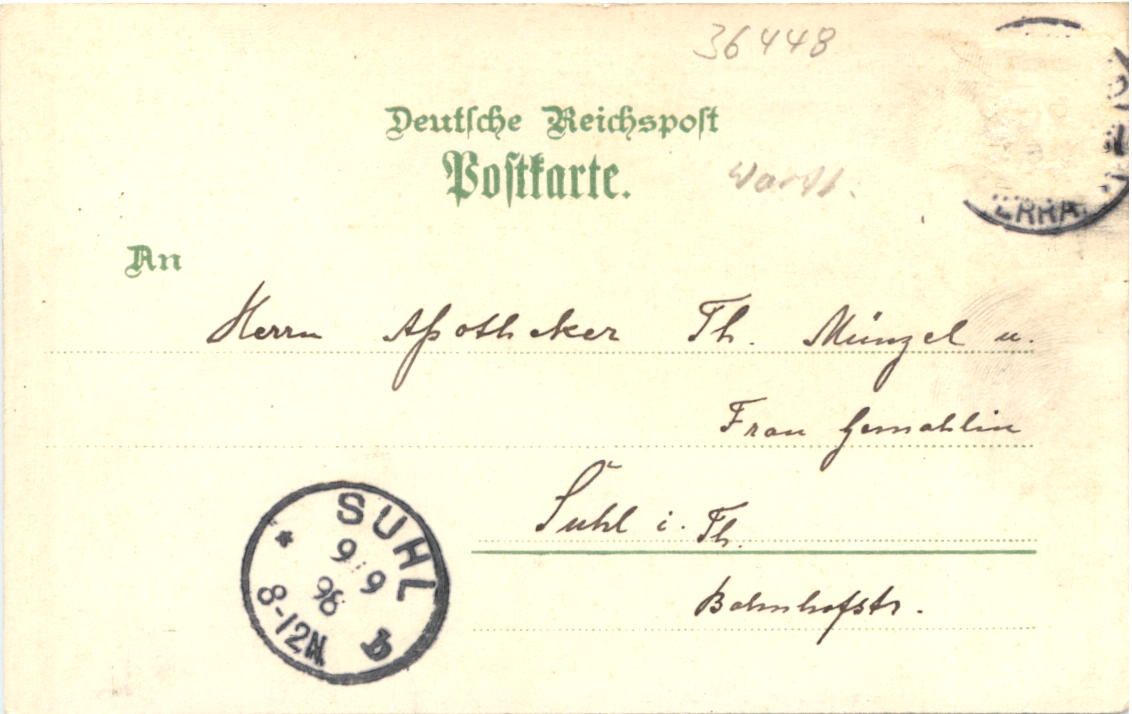 36448
Deutsche Reichspost
Postkarte.
An
Herrn Apotheker Th. Münzel u.
Frau Gemahlin
Suhl i. Th.
Bahnhofstr.
SUHL
9 9
96
8-12N
b
ERRA